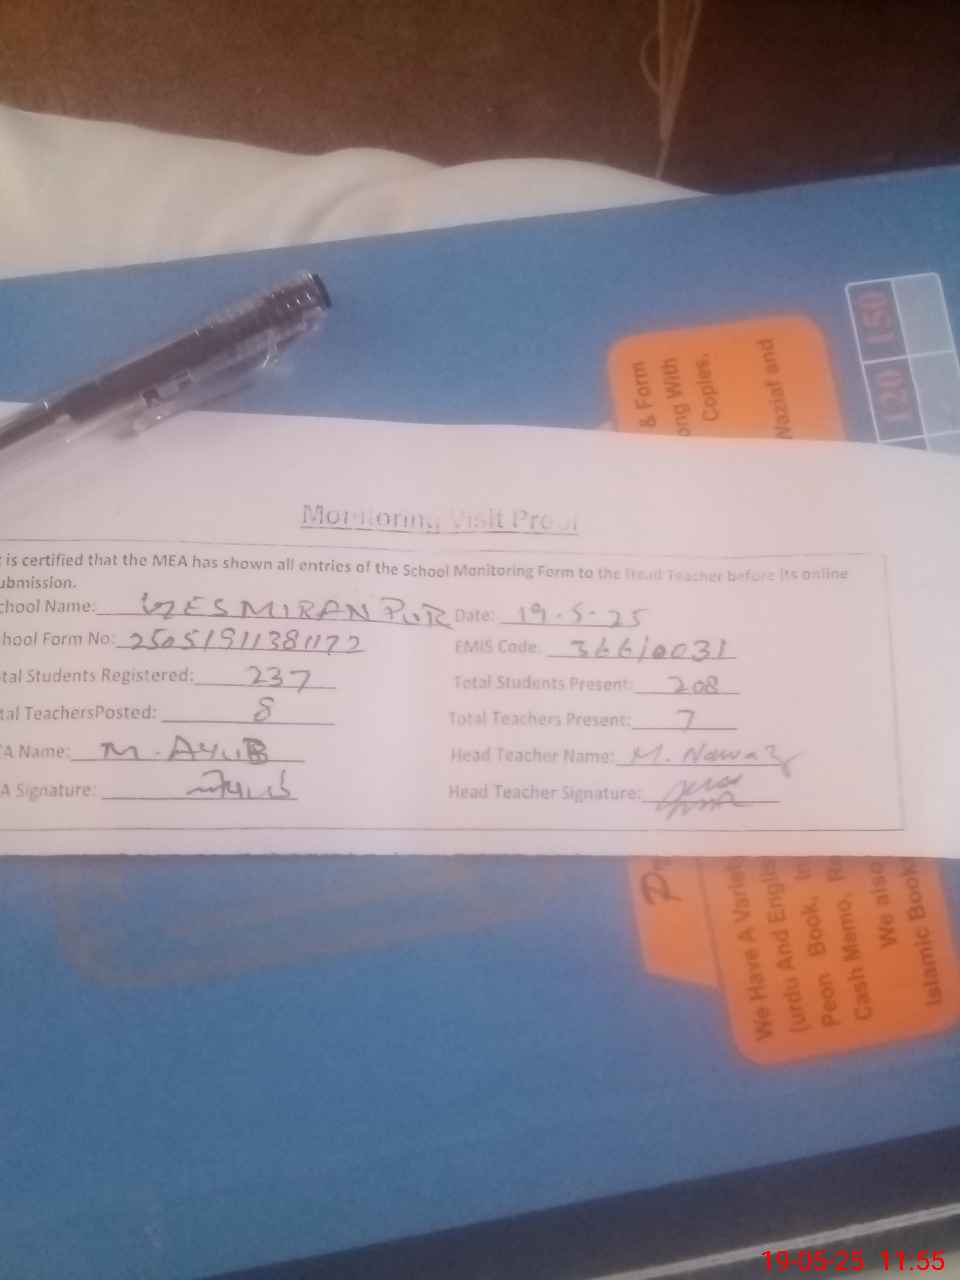 150
120
& Form
ong With
Copies.
Naziat and
Monitoring Visit Proof
is certified that the MEA has shown all entries of the School Monitoring Form to the Head Teacher before its online
ubmission.
chool Name: GES MIRAN PUR Date: 19-5-25
hool Form No: 25051911381172 EMIS Code: 36610031
tal Students Registered: 237 Total Students Present: 208
tal TeachersPosted: 8 Total Teachers Present: 7
A Name: M-AYUB Head Teacher Name: M. Nawaz
A Signature: Head Teacher Signature:
We Have A Variet
(urdu And Englis
Peon Book,
Cash Memo, Re
We also
Islamic Book
19-05-25 11:55